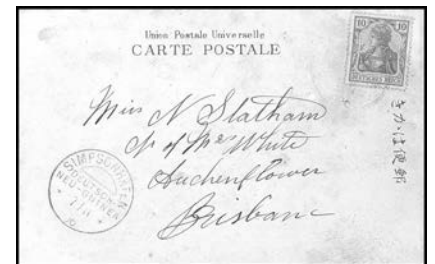 Union Postale Universelle
CARTE POSTALE
10 10
DEUTSCHES REICH
Miss N Statham
c/o of Mrs White
Auchenflower
Brisbane
きかは便郵
SIMPSONHAFEN
DEUTSCH-
NEU-GUINEA